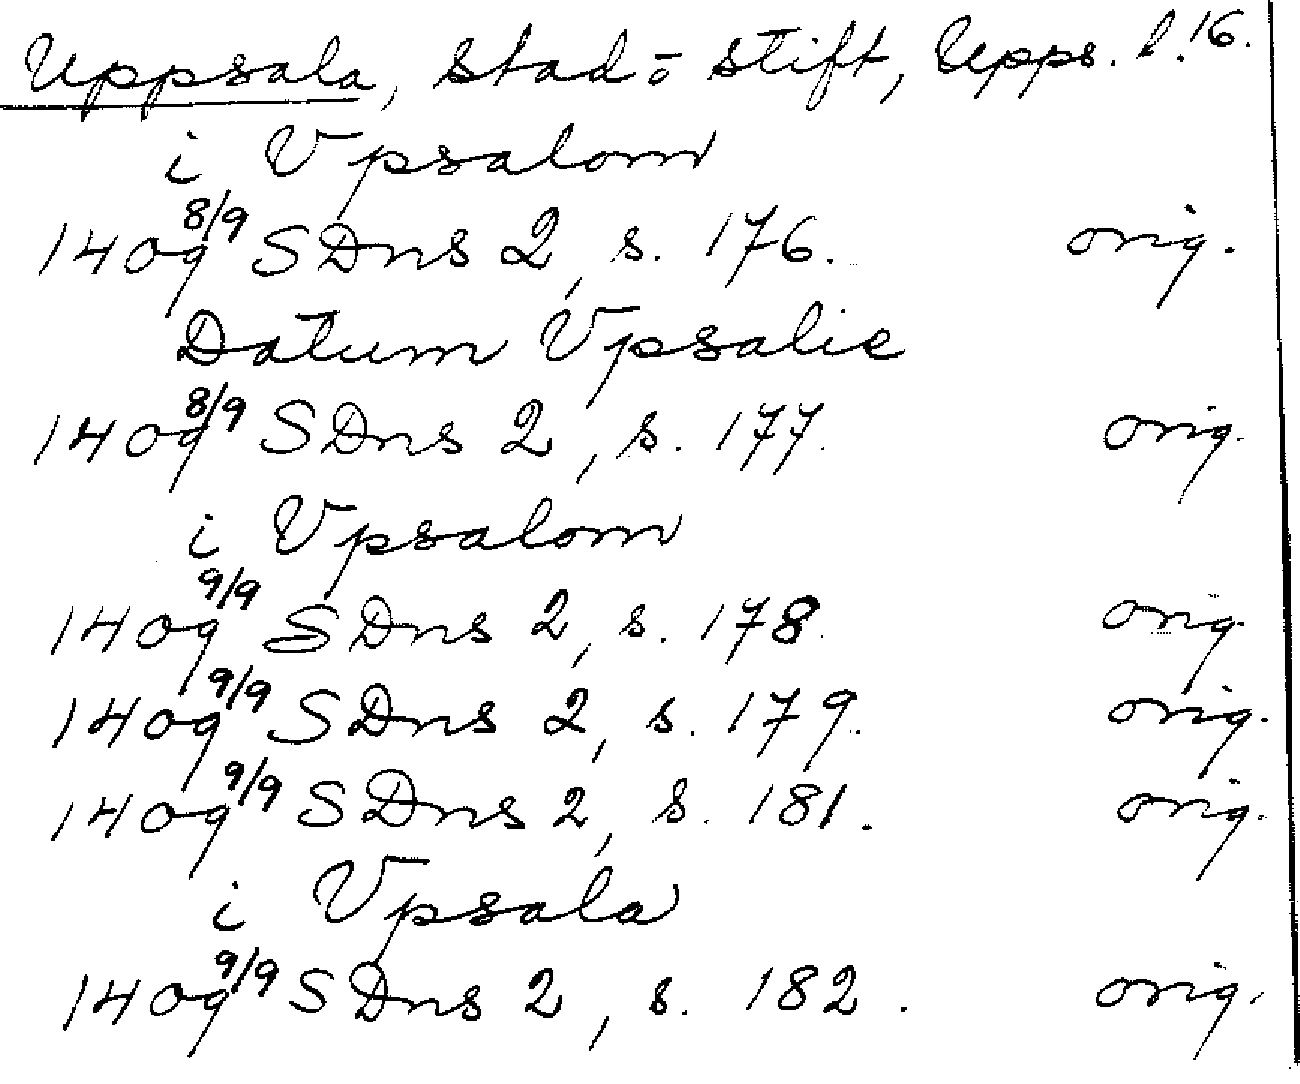 Uppsala, stad o stift, Upps. l. 16.
i Vpsalom
1409 8/9 SDns 2, s. 176. orig.
Datum Vpsalie
1409 8/9 SDns 2, s. 177. orig.
i Vpsalom
1409 9/9 SDns 2, s. 178. orig.
1409 9/9 SDns 2, s. 179. orig.
1409 9/9 SDns 2, s. 181. orig.
i Vpsala
1409 9/9 SDns 2, s. 182. orig.